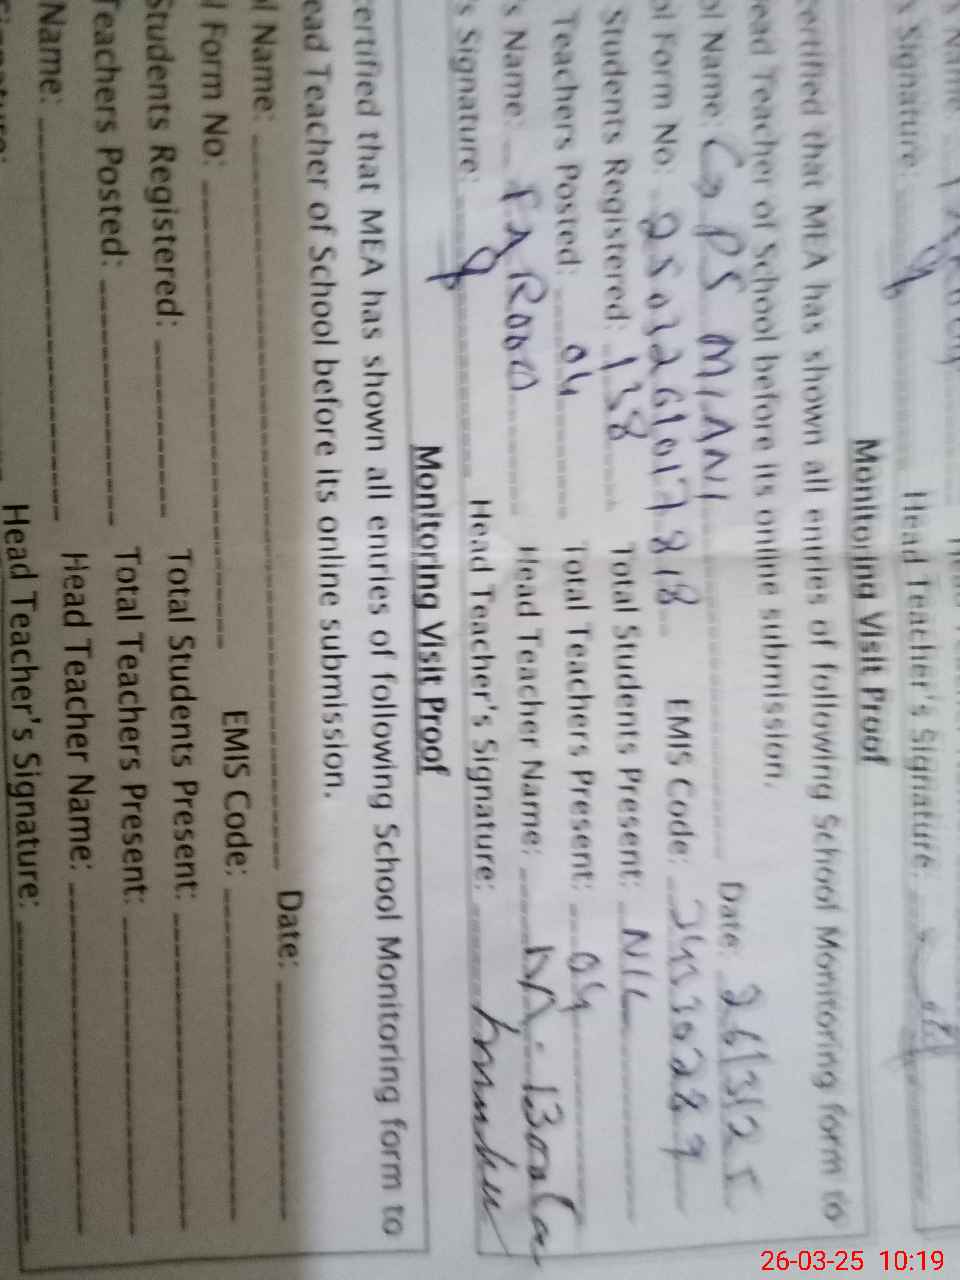 s Signature: Head Teacher's Signature:
Monitoring Visit Proof
ertified that MEA has shown all entries of following School Monitoring form to
ead Teacher of School before its online submission.
ol Name: GPS MIANI Date: 26/3/25
ol Form No: EMIS Code:
Students Registered: 138 Total Students Present: NIL
Teachers Posted: 04 Total Teachers Present: 04
s Name: FAROOQ Head Teacher Name:
's Signature: Head Teacher's Signature:
Monitoring Visit Proof
ertified that MEA has shown all entries of following School Monitoring form to
ead Teacher of School before its online submission.
ol Name: Date:
l Form No: EMIS Code:
Students Registered: Total Students Present:
Teachers Posted: Total Teachers Present:
Name: Head Teacher Name:
Head Teacher's Signature:
26-03-25 10:19